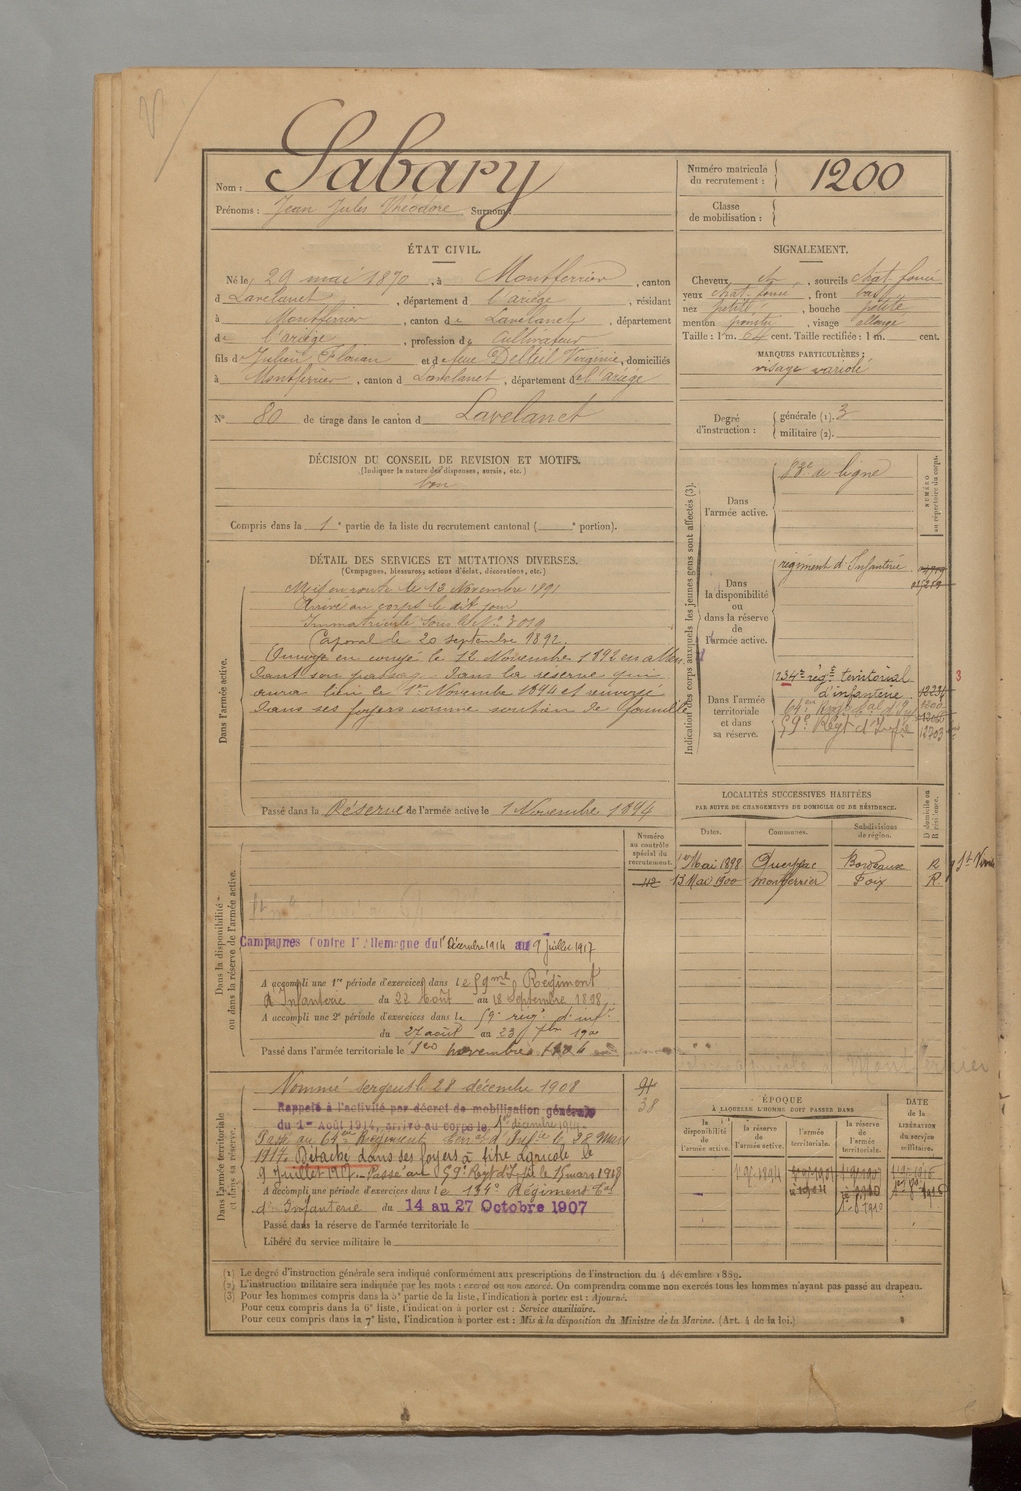 Nom : Sabary
Prénoms : Jean Jules Théodore Surnom :
Numéro matricule du recrutement : 1200
Classe de mobilisation :
ÉTAT CIVIL.
Né le 29 mai 1870, à Montferrier, canton
d Lavelanet, département d l'ariège, résidant
à Montferrier, canton de Lavelanet, département
de l'ariège, profession de Cultivateur
fils d Julien Florian et de feue Delteil Virginie, domiciliés
à Montferrier, canton d Lavelanet, département de l'ariège
N° 80 de tirage dans le canton d Lavelanet
SIGNALEMENT.
Cheveux ch, sourcils chat. foncé
yeux chat. foncé, front bas
nez petite, bouche petite
menton pointu, visage allongé
Taille : 1 m. 64 cent. Taille rectifiée : 1 m. cent.
MARQUES PARTICULIÈRES :
visage variolé
Degré d'instruction : générale (1). 3
militaire (2).
DÉCISION DU CONSEIL DE REVISION ET MOTIFS.
(Indiquer la nature des dispenses, sursis, etc.)
bon
Compris dans la 1e partie de la liste du recrutement cantonal ( e portion).
DÉTAIL DES SERVICES ET MUTATIONS DIVERSES.
(Campagnes, blessures, actions d'éclat, décorations, etc.)
Dans l'armée active.
Mis en route le 13 Novembre 1891
Arrivé au corps le dit jour
Immatriculé sous le N° 3019
Caporal le 20 septembre 1892.
Envoyé en congé le 12 Novembre 1892 en atten-
dant son passage dans la réserve qui
aura lieu le 1er Novembre 1894 et renvoyé
dans ses foyers comme soutien de famille
Passé dans la Réserve de l'armée active le 1 Novembre 1894
Indication des corps auxquels les jeunes gens sont affectés (3).
NUMÉRO au répertoire du corps.
Dans l'armée active.
83e de ligne
Dans la disponibilité ou dans la réserve de l'armée active.
régiment d'Infanterie
Dans l'armée territoriale et dans sa réserve.
134e régt territorial
d'infanterie
59e Regt d'Infie 12703
3
LOCALITÉS SUCCESSIVES HABITÉES
PAR SUITE DE CHANGEMENTS DE DOMICILE OU DE RÉSIDENCE.
Dates. Communes. Subdivisions de région. D domicile ou R résidence.
1er Mai 1898 Bordeaux R
13 Mai 1900 Montferrier Foix R
Numéro au contrôle spécial du recrutement.
112
Dans la disponibilité ou dans la réserve de l'armée active.
Campagnes Contre l'Allemagne du 1er Décembre 1914 au 9 Juillet 1917
A accompli une 1re période d'exercices dans le 59me Régiment
d'Infanterie du 22 Août au 18 Septembre 1898.
A accompli une 2e période d'exercices dans le 59e régt d'inft
du 27 août au 23 7bre 1900
Passé dans l'armée territoriale le 1er novembre 1904
Dans l'armée territoriale et dans sa réserve.
Nommé sergent le 28 décembre 1908
38
Rappelé à l'activité par décret de mobilisation générale
du 1er Août 1914, arrivé au corps le 1er décembre 1914.
Passé au 64me Régiment Territ. d'Infie le 28 Mars
1917. Détaché dans ses foyers à titre agricole le
9 Juillet 1917. Passé au 59e Regt d'Infie le 15 mars 1918
A accompli une période d'exercices dans le 134e Régiment Tal
d'Infanterie du 14 au 27 Octobre 1907
Passé dans la réserve de l'armée territoriale le
Libéré du service militaire le
ÉPOQUE
À LAQUELLE L'HOMME DOIT PASSER DANS
la disponibilité de l'armée active. la réserve de l'armée active. l'armée territoriale. la réserve de l'armée territoriale.
DATE de la LIBÉRATION du service militaire.
1 9bre 1894
(1) Le degré d'instruction générale sera indiqué conformément aux prescriptions de l'instruction du 4 décembre 1889.
(2) L'instruction militaire sera indiquée par les mots : exercé ou non exercé. On comprendra comme non exercés tous les hommes n'ayant pas passé au drapeau.
(3) Pour les hommes compris dans la 5e partie de la liste, l'indication à porter est : Ajourné.
Pour ceux compris dans la 6e liste, l'indication à porter est : Service auxiliaire.
Pour ceux compris dans la 7e liste, l'indication à porter est : Mis à la disposition du Ministre de la Marine. (Art. 4 de la loi.)